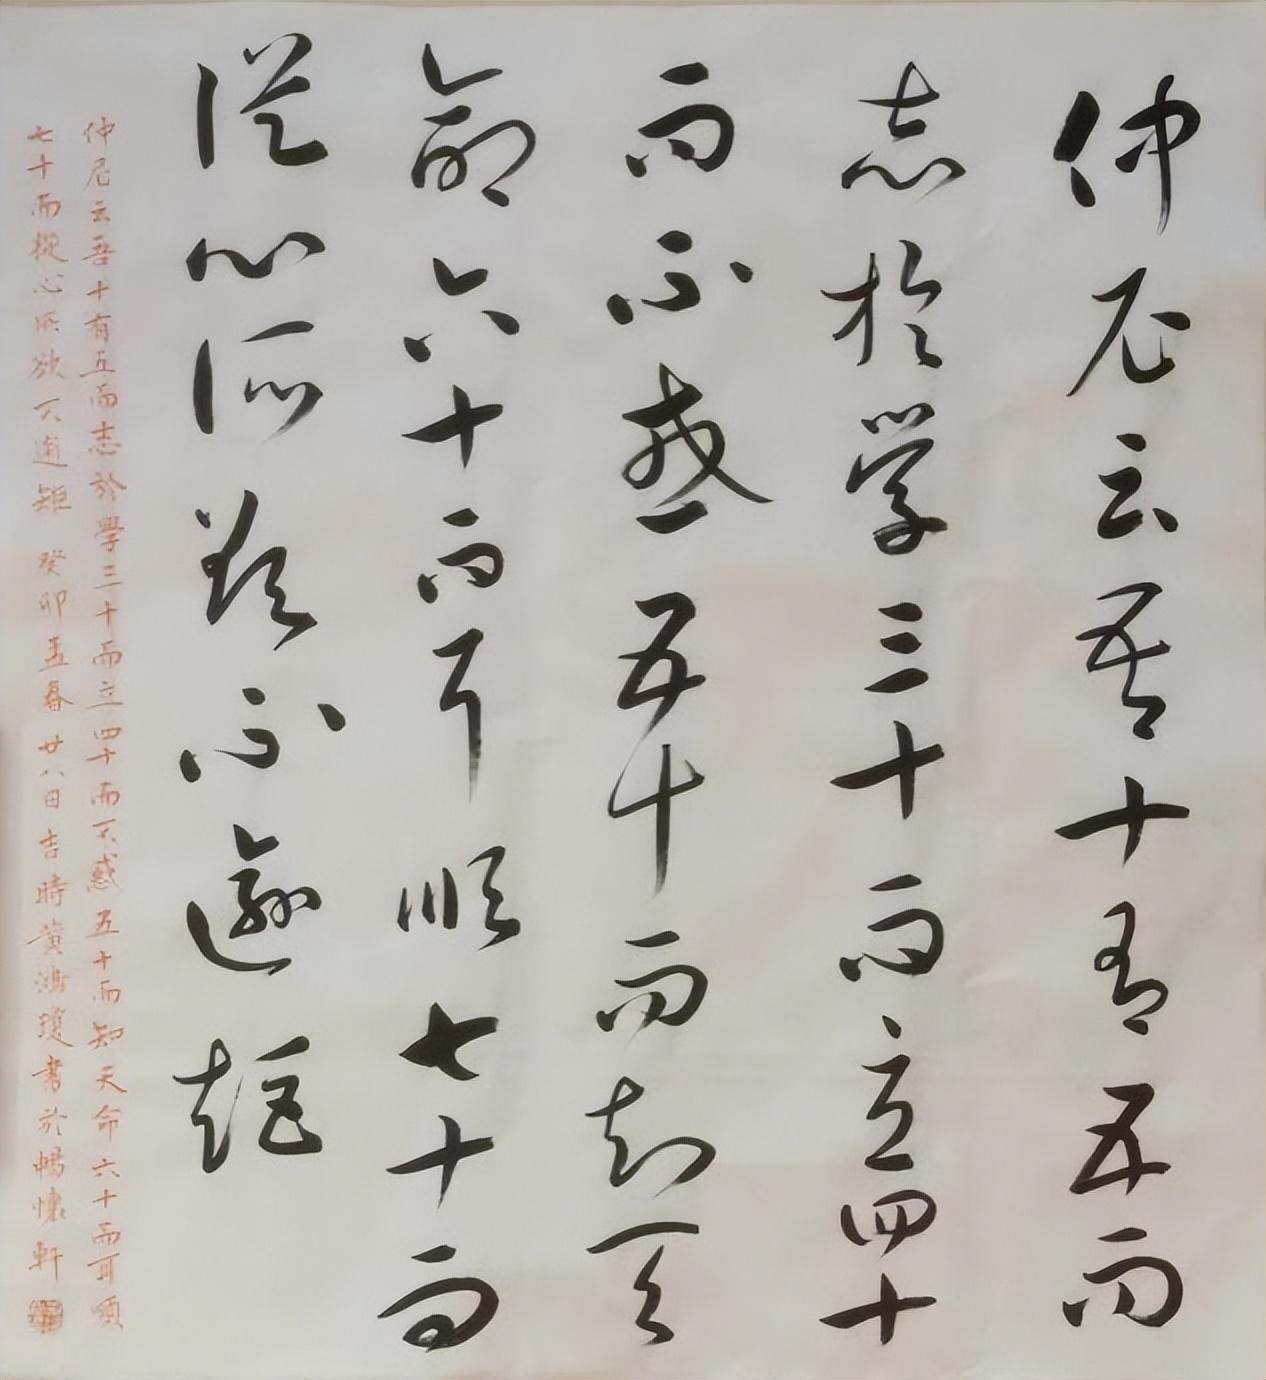 仲尼云吾十有五而
志於学三十而立四十
而不惑五十而知天
命六十而耳順七十而
從心所欲不逾矩
仲尼云吾十有五而志於學三十而立四十而不惑五十而知天命六十而耳順
七十而從心所欲不逾矩 癸卯孟春廿八日吉時黃鴻瓊書於暢懷軒